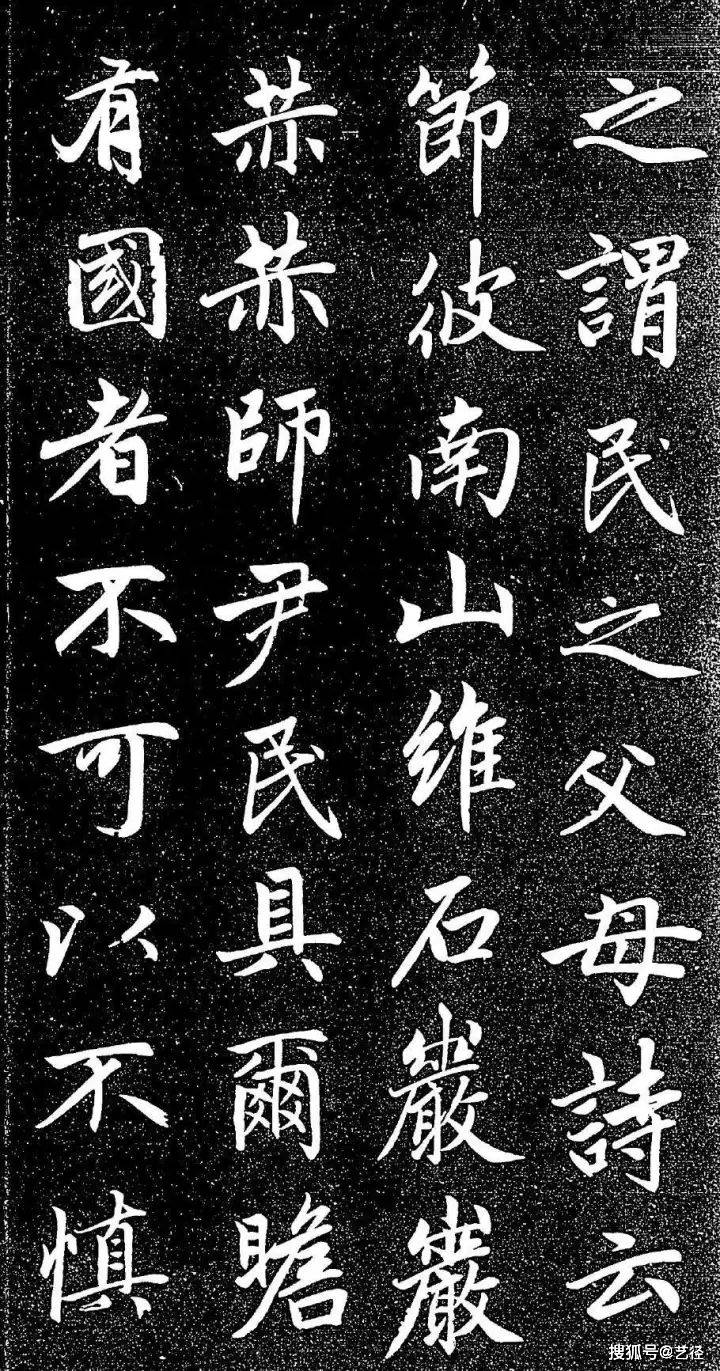 之謂民之父母詩云
節彼南山維石巖巖
赫赫師尹民具爾瞻
有國者不可以不慎
搜狐号@艺径